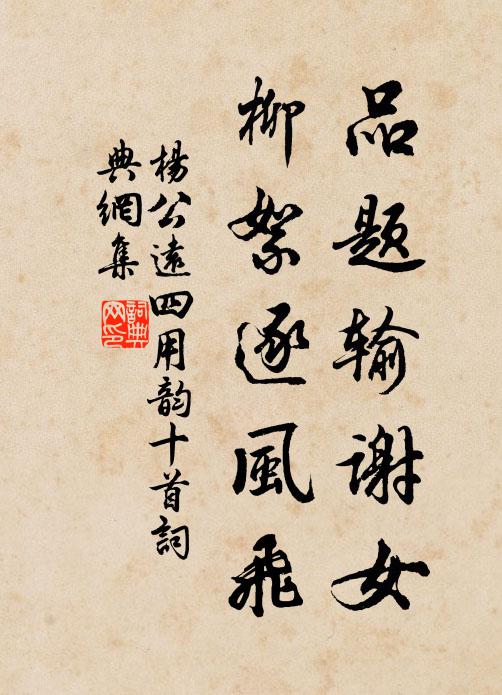 品题输谢女
柳絮逐風飛
楊公遠四用韵十首詞
典網集
詞典
网印